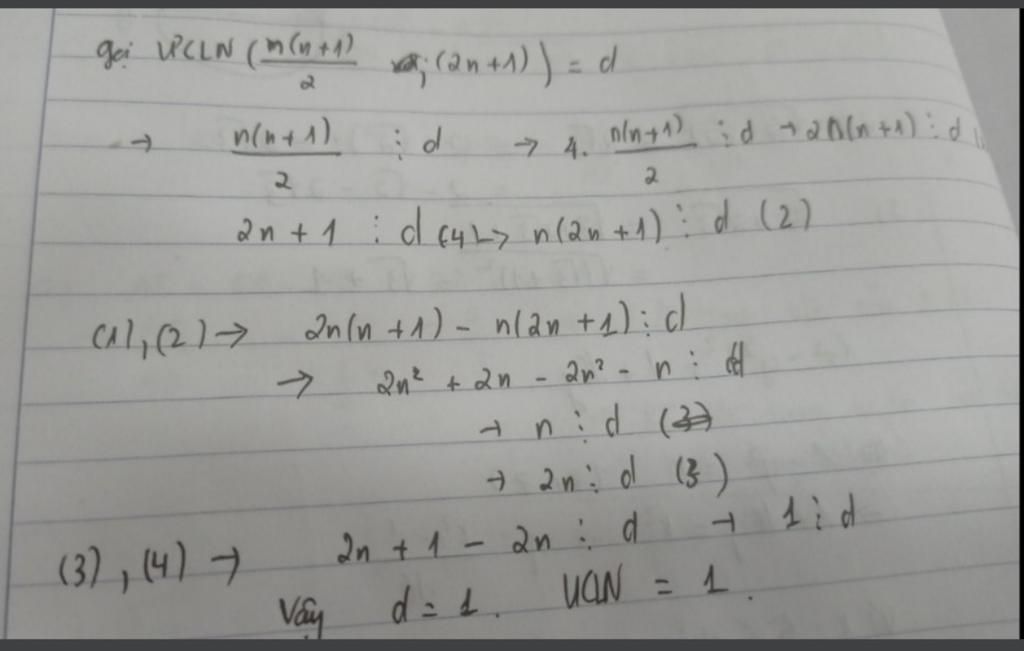 gọi ƯCLN (n(n+1)/2 ; (2n+1)) = d
→ n(n+1)/2 ⋮ d → 4. n(n+1)/2 ⋮ d → 2n(n+1) ⋮ d (1)
2n + 1 ⋮ d (4) → n(2n+1) ⋮ d (2)
(1), (2) → 2n(n+1) - n(2n+1) ⋮ d
→ 2n² + 2n - 2n² - n ⋮ d
→ n ⋮ d
→ 2n ⋮ d (3)
(3), (4) → 2n + 1 - 2n ⋮ d → 1 ⋮ d
Vậy d = 1. ƯCLN = 1.